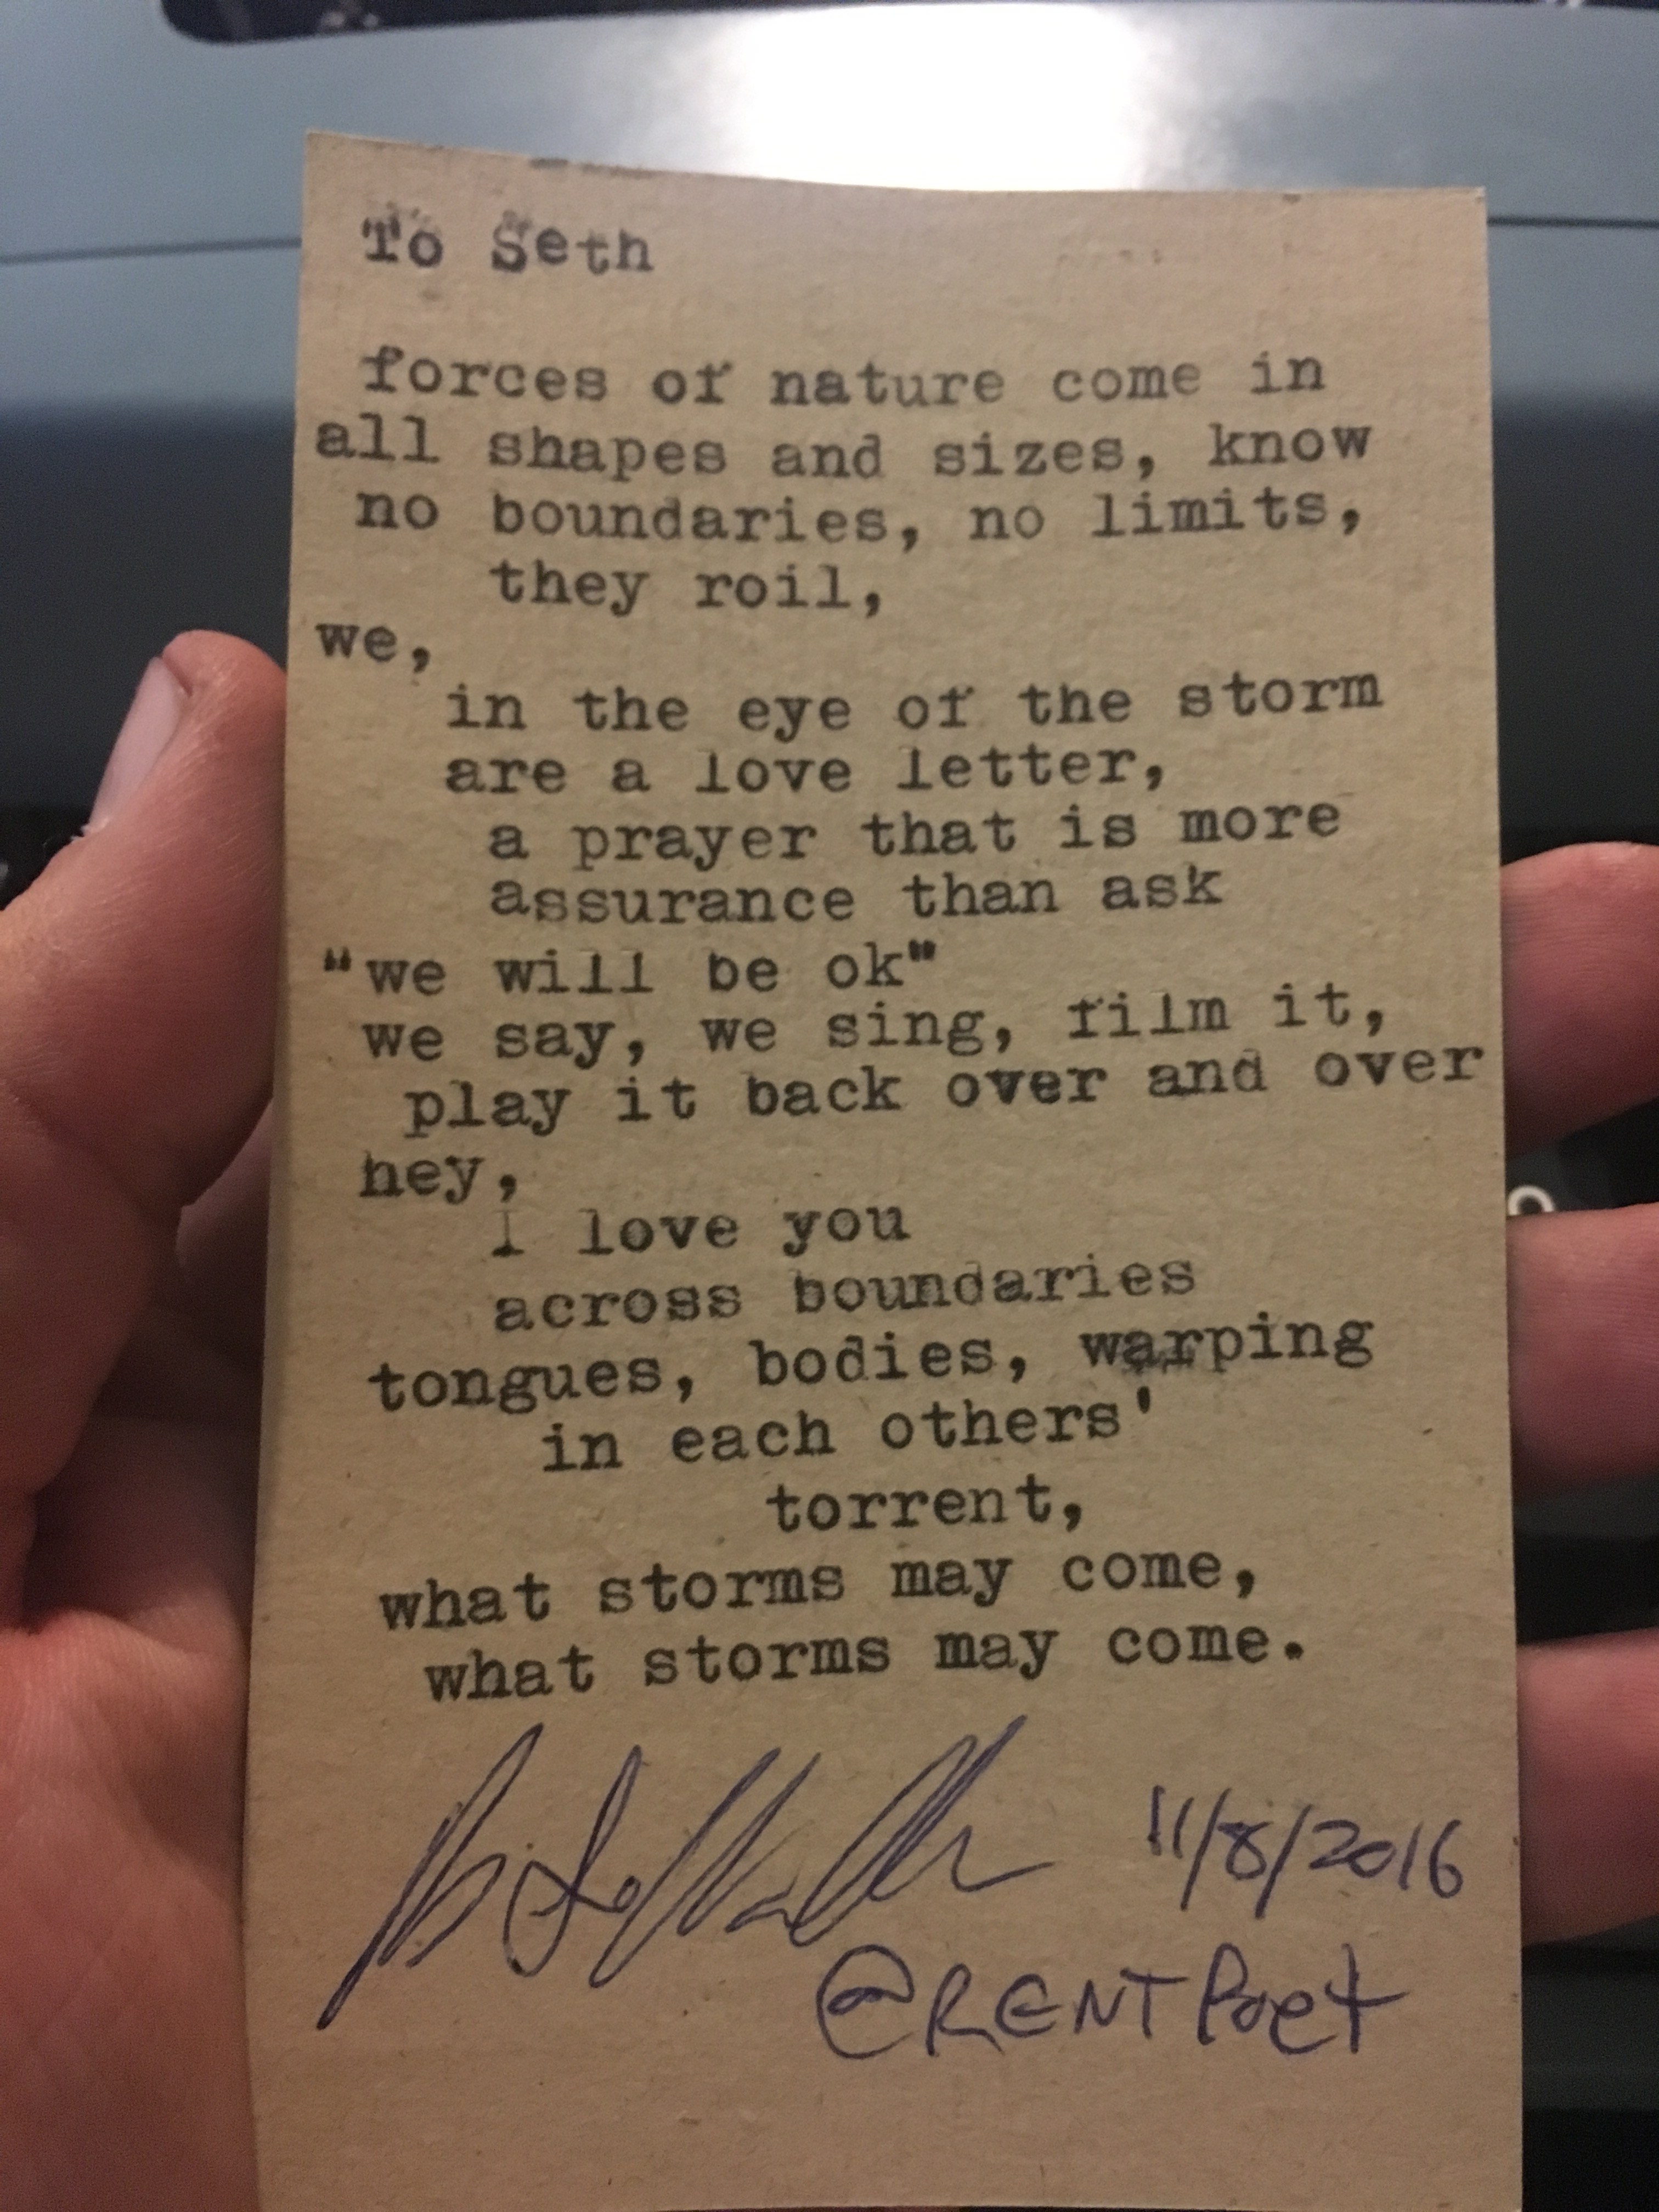 To Seth
forces of nature come in
all shapes and sizes, know
no boundaries, no limits,
they roil,
we,
in the eye of the storm
are a love letter,
a prayer that is more
assurance than ask
"we will be ok"
we say, we sing, film it,
play it back over and over
hey,
I love you
across boundaries
tongues, bodies, warping
in each others'
torrent,
what storms may come,
what storms may come.
11/8/2016
@RENTPoet